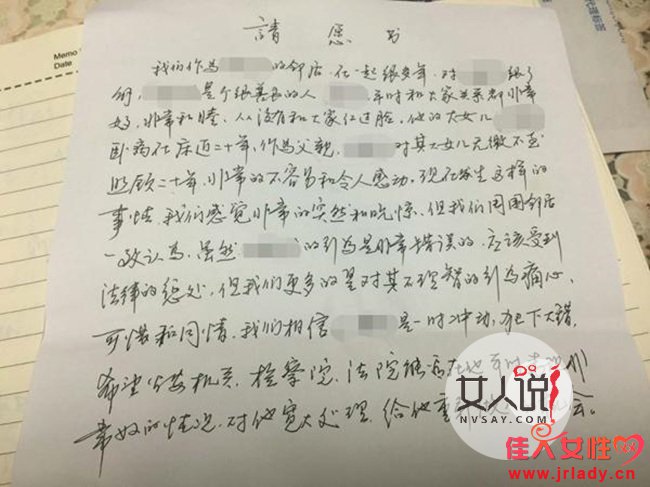 Memo
Date
請愿书
我们作为 的邻居,在一起很多年,对 很了
解, 是个很善良的人, 平时和大家关系都非常
好,非常和睦,从没有和大家红过脸,他的大女儿
卧病在床近二十年,作为父亲, 对其大女儿无微不至
照顾二十年,非常的不容易和令人感动,现在发生这样的
事情,我们感觉非常的突然和吃惊,但我们周围邻居
一致认为,虽然 的行为是非常错误的,应该受到
法律的惩处,但我们更多的是对其不理智的行为痛心、
可惜和同情,我们相信 是一时冲动,犯下大错,
希望公安机关、检察院、法院能 在他平时表现
非常好的情况,对他宽大处理,给他重 会。
女人说
NVSAY.COM
佳人女性网
www.jrlady.cn